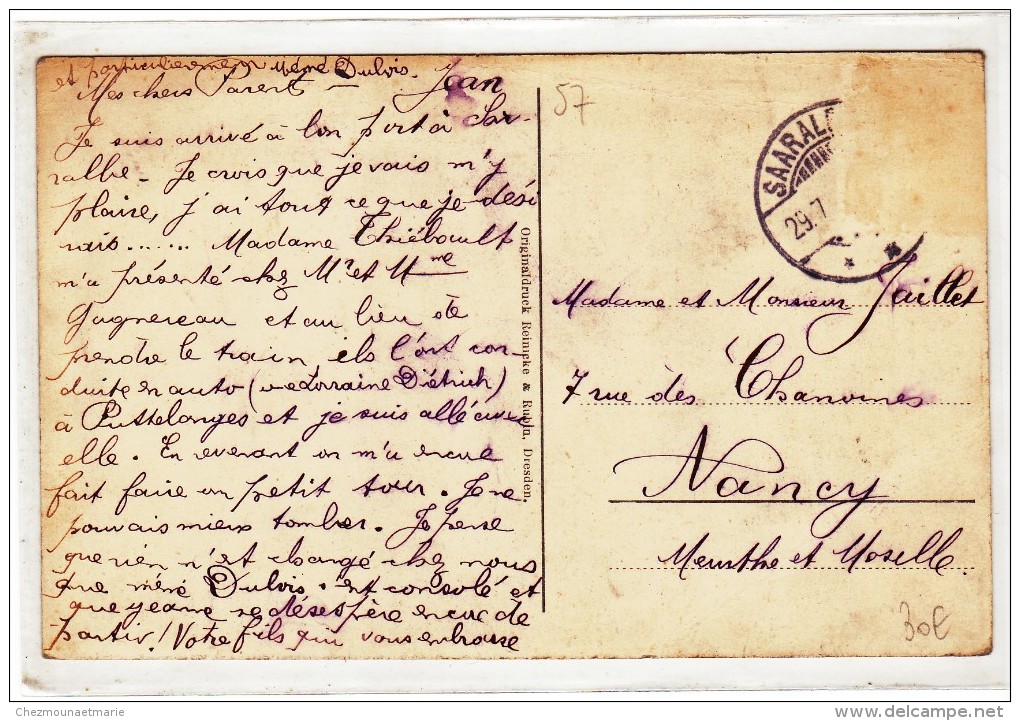 et particulièrement mémé Dulvis. Jean
Mes chers Parents —
Je suis arrivé à bon port à Sar-
ralbe - Je crois que je vais m'y
plaire, j'ai tout ce que je dési
rais ...... Madame Thiébault
m'a présenté chez Mr et Mme
Gagnereau et au lieu de
prendre le train ils l'ont con-
duite en auto (une Lorraine Diétrich)
à Puttelanges et je suis allé avec
elle. En revenant on m'a encore
fait faire un petit tour. Je ne
pouvais mieux tomber. Je pense
que rien n'est changé chez nous
que mémé Dulvis est consolé et
que Jeanne se désespère encor de
partir! Votre fils qui vous embrasse
Originaldruck Reinicke & Rubin, Dresden.
57
SAARAL
29.7
Madame et Monsieur Jaillet
7 rue des Chanoines
Nancy
Meurthe et Moselle.
30€
Chezmounaetmarie
delcampe.net